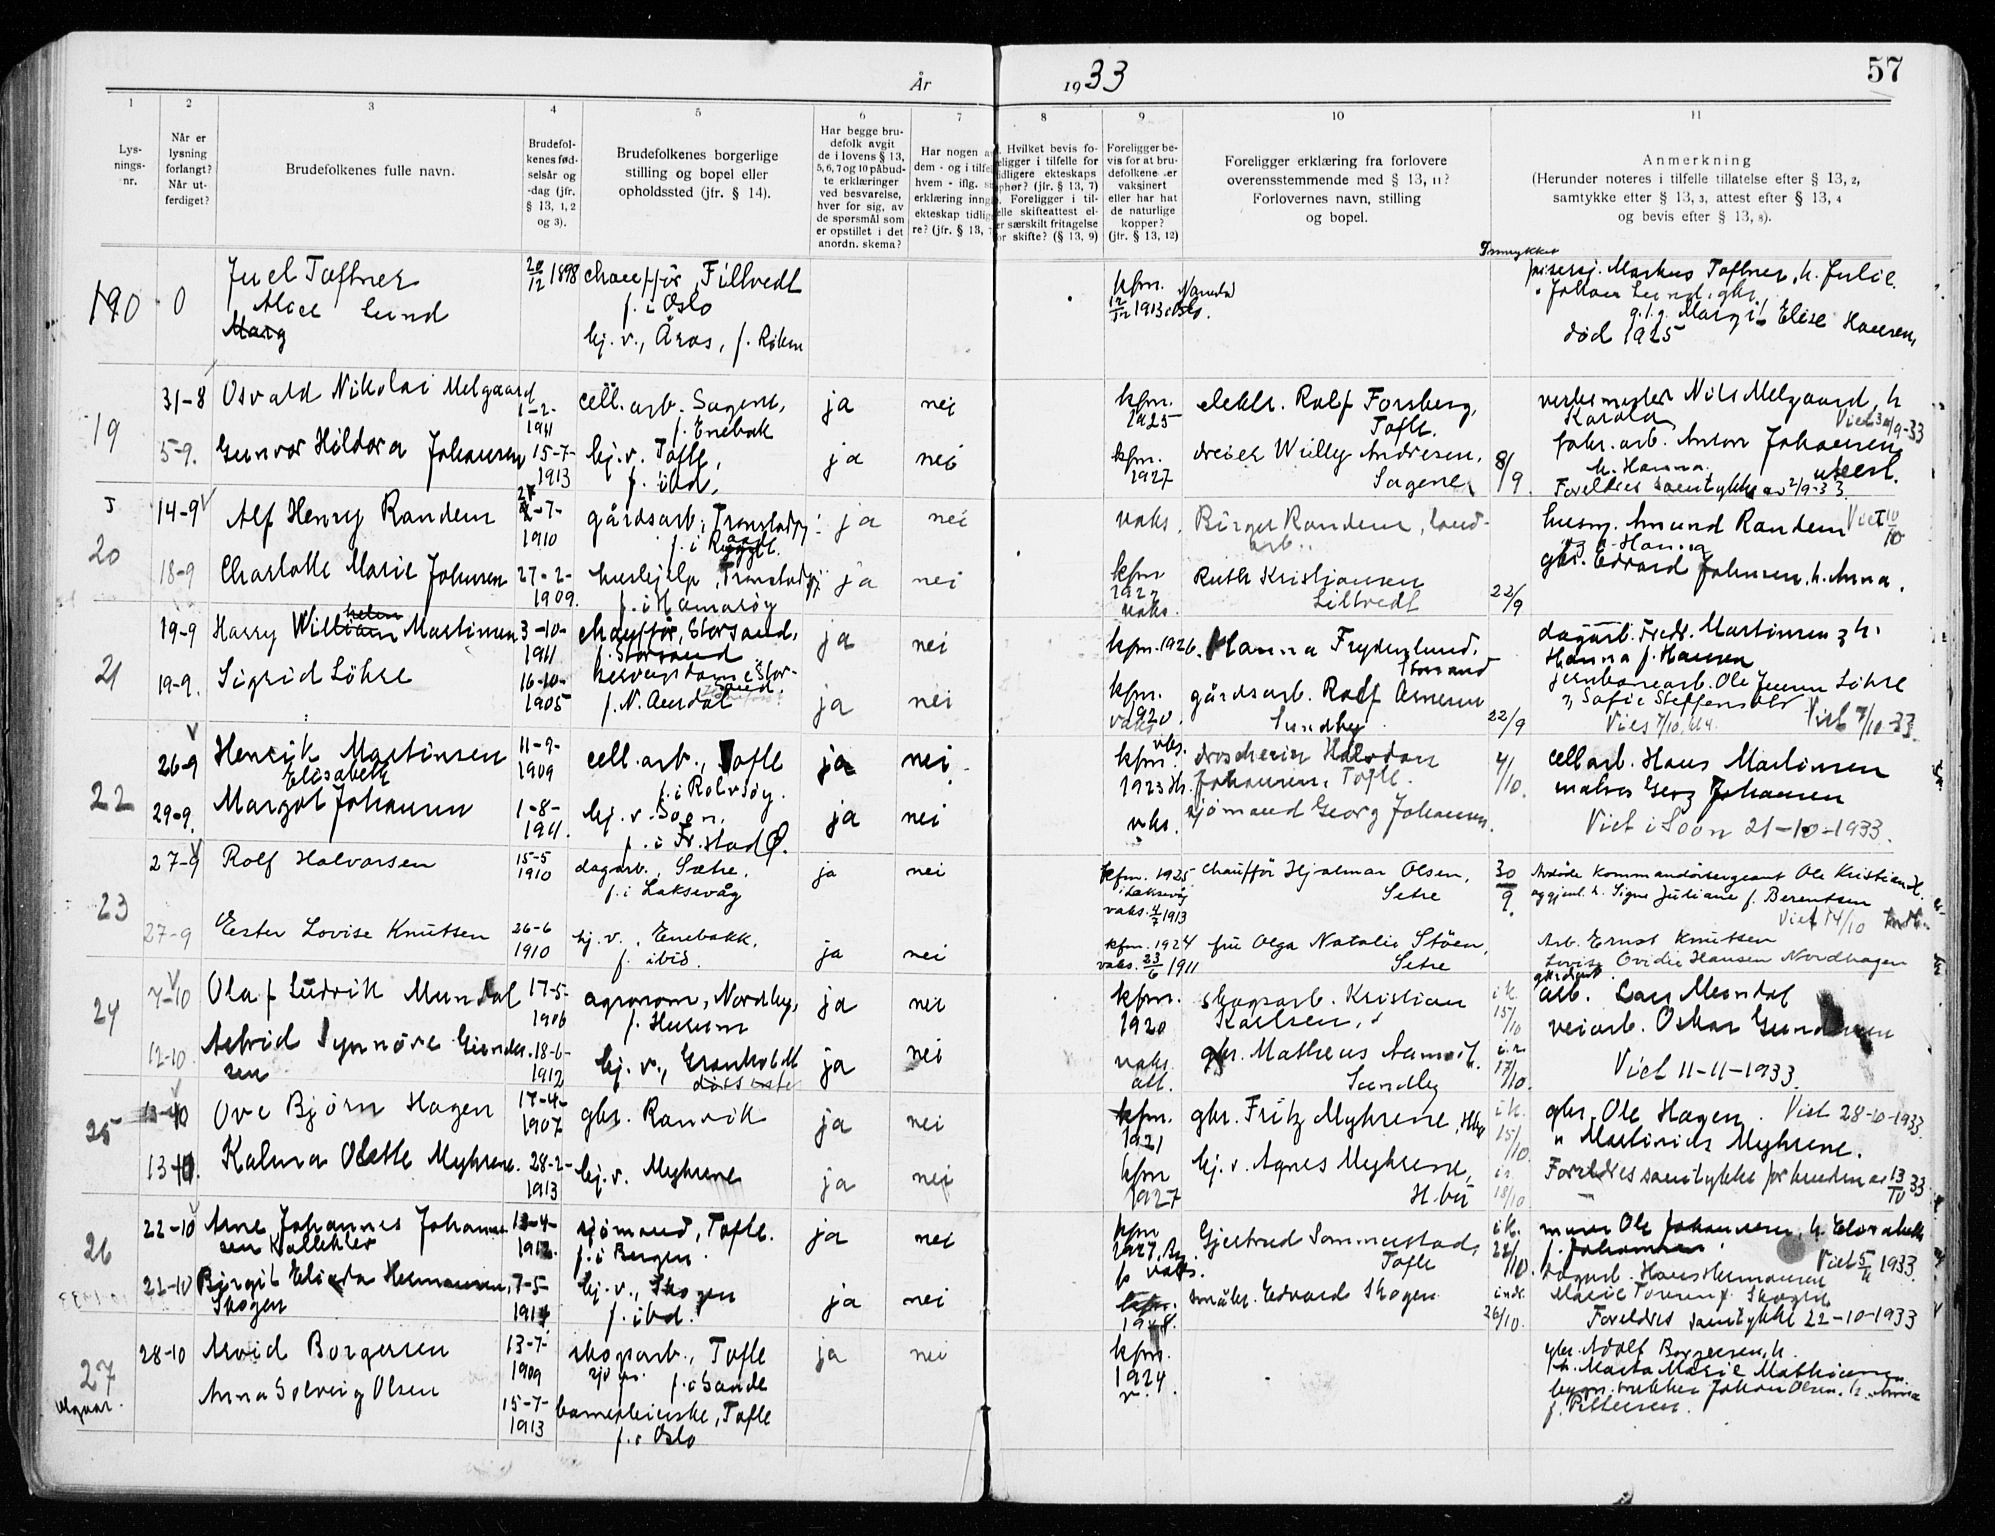 År 1933
57
1 2 3 4 5 6 7 8 9 10 11
Lys-
nings-
nr.
Når er
lysning
forlangt?
Når ut-
ferdiget?
Brudefolkenes fulle navn.
Brudefol-
kenes fød-
selsår og
-dag (jfr.
§ 13, 1, 2
og 3).
Brudefolkenes borgerlige
stilling og bopel eller
opholdssted (jfr. § 14).
Har begge bru-
defolk avgit
de i lovens § 13,
5, 6, 7 og 10 påbud-
te erklæringer
ved besvarelse,
hver for sig, av
de spørsmål som
er opstillet i det
anordn. skema?
Har nogen a
dem - og i tilfel
hvem - iflg. s
erklæring inng
ekteskap tidlig
re? (jfr. § 13,
Hvilket bevis fo-
eligger i tilfelle for
idligere ekteskaps
phør? (jfr. § 13, 7)
Foreligger i til-
elle skifteattest el-
er særskilt fritagelse
or skifte? (§ 13, 9)
Foreligger be-
vis for at bru-
defolkene er
vaksinert
eller har hat
de naturlige
kopper?
(jfr. § 13, 12)
Foreligger erklæring fra forlovere
overensstemmende med § 13, 11?
Forlovernes navn, stilling
og bopel.
Anmerkning
(Herunder noteres i tilfelle tillatelse efter § 13, 2,
samtykke efter § 13, 3, attest efter § 13, 4
og bevis efter § 13, 8).
190 0 Juel Toftner 20/12 1898 chauffør, Filtvedt
f. i Oslo
Alice Lund
Marg
hj. v., Åros, f. Røken
kfm.
1913 Oslo.
Markus Toftner, h. Julie
Johan Lund, gbr.
Margit Elise Hansen,
død 1925
19 31-8 Osvald Nikolai Melgaard 1-2-1911 cell. arb. Sagene,
f. Enebak ja nei kfm. 1925 elektr. Rolf Forsberg,
Tofte.
verksmester Nils Melgaard, h
Karola
5-9. Gunvor Hildora Johansen 15-7-1913 hj. v. Tofte,
f. ibd. ja nei kfm. 1927 dreier Willy Andresen,
Sagene 8/9
fabr. arb. Anton Johansen
h. Hanna.
Foreldres samtykke av 2/9-33.
20 14-9 Alf Henry Randem 7-1910 gårdsarb., ja nei vaks. Birger Randem, land-
arb.
husm. Amund Randem Viet 10/10
h. Hanna
18-9 Charlotte Marie Johnsen 27-2-1909. hushjelp,
f. i Hamarøy ja nei kfm
vaks. Ruth Kristiansen
Filtvedt 22/9
gbr. Edvard Johnsen, h. Anna.
21 19-9 Harry Martinsen 3-10-1911 chauffør, Storsand,
f. Storsand ja nei kfm. 1926. Hanna Frydenlund,
Storsand
dagarb. Fredr. Martinsen & h.
Hanna f. Hansen
19-9. Sigrid Löhre 16-10-1905
f. N. Aurdal ja nei kfm. 1920. vaks. gårdsarb. Rolf Arnesen
Sundby 22/9
jernbanearb. Ole Löhre
Viet 7/10-33.
22 26-9 Henrik Martinsen 11-9-1909 cell. arb., Tofte
f. i Rolvsøy. ja nei kfm. 1923 Halvdan
Johansen, Tofte. 4/10.
cellarb. Hans Martinsen
29-9. Margot Elisabeth Johansen 1-8-1911. hj. v. Soon,
f. i Fr. stad Ø. ja nei vaks. sjømand Georg Johansen.
maler Georg Johansen
Viet i Soon 21-10-1933.
23 27-9 Rolf Halvorsen 15-5 1910 dagarb., Sætre.
f. i Laksevåg ja nei kfm. 1925
i Laksevåg
vaks. 1913 chauffør Hjalmar Olsen,
Setre 30/9.
kommandørsergeant Ole Kristian H.
h. Signe Juliane f. Berentsen
Viet 14/10
27-9 Ester Lovise Knutsen 26-6 1910 hj. v., Enebakk,
f. ibid. ja nei kfm. 1924
vaks. 23/6 1911 fru Olga Natalie Støen,
Setre
Arb. Ernst Knutsen
Lovise Ovidie Hansen Nordhagen
24 7-10 Olaf Ludvik Mundal 17-5-1906 agronom, Nordby,
f. Hurum ja nei kfm. 1920 skogsarb. Kristian
Karlsen, i k. 15/10
arb. Lars Mundal
12-10 Astrid Synnøve Gunder-
sen 18-6-1912 hj. v., Granholdt ja nei vaks.
att. gbr. Matheus
Sundby 17/10.
veiarb. Oskar Gundersen
Viet 11-11-1933.
25 13-10 Ove Bjørn Hagen 17-4-1907 gbr. Ranvik ja nei kfm. 1921 gbr. Fritz Myhrene, i k. 15/10
gbr. Ole Hagen. Viet 28-10-1933.
13-10. Kalma Olette Myhrene. 28-2-1913 hj. v. Myhrene ja nei kfm 1927 hj. v. Agnes Myhrene,
H. bu 18/10
" Martinius Myhrene.
Foreldres samtykke for bruden av 13/10 33
26 22-10 Arne Johannes Johanne-
sen Kallekler 1912. sjømand, Tofte.
f. i Bergen. ja nei kfm 1927,
vaks. Gjertrud Sommerstad,
Tofte i k. 22/10.
murer Ole Johannesen, h. Elisabeth
f. Johannesen
Viet 5/11 1933.
22-10 Birgit Elida Hermansen,
Skogen 7-5-1914 hj. v., Skogen
f. ibd. ja nei kfm. 1928. småbr. Edvard Skogen 26/10.
dagarb. Hans Hermansen
Foreldres samtykke 22-10-1933
27 28-10 Arvid Borgersen 13-7-1909 skogsarb., Tofte
f. i Sande ja nei kfm. 1924
v.
gbr. Adolf Borgersen, h.
Marta Marie Mathiesen.
Anna Solveig Olsen 15-7-1913 barnepleierske, Tofte
f. i Oslo
Johan Olsen, h. Anna
f. Pettersen.